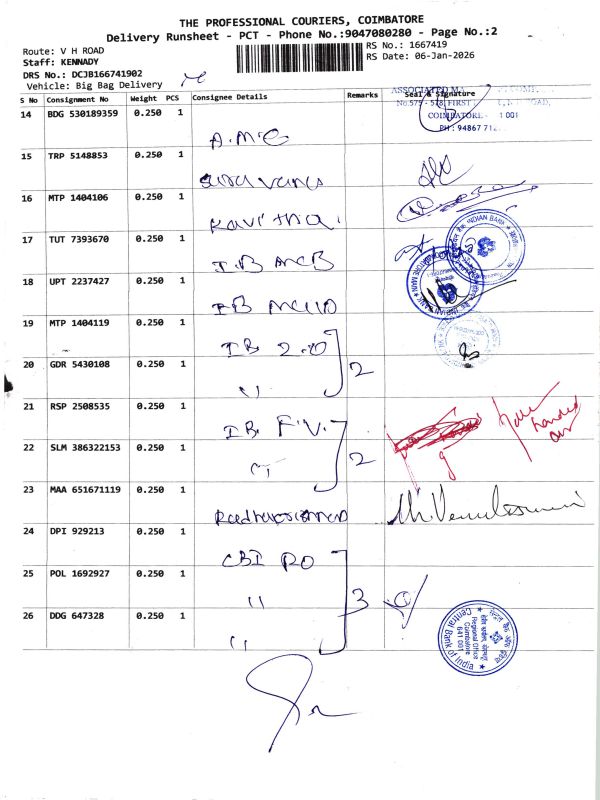 THE PROFESSIONAL COURIERS, COIMBATORE
Delivery Runsheet - PCT - Phone No.:9047080280 - Page No.:2
Route: V H ROAD
RS No.: 1667419
Staff: KENNADY
RS Date: 06-Jan-2026
DRS No.: DCJB166741902
Vehicle: Big Bag Delivery
S No Consignment No Weight PCS Consignee Details Remarks Seal & Signature
ASSOCIATED
No.575 - 578, FIRST
COIMBATORE - 1 001
PH : 94867 712
14 BDG 530189359 0.250 1
A.M.C
15 TRP 5148853 0.250 1
Saravana
16 MTP 1404106 0.250 1
Kavitha
17 TUT 7393670 0.250 1
I.B MCB
INDIAN BANK
18 UPT 2237427 0.250 1
IB
19 MTP 1404119 0.250 1
IB Z.O
20 GDR 5430108 0.250 1
" 2
21 RSP 2508535 0.250 1
IB. F.V.
have handed over
22 SLM 386322153 0.250 1
" 2
23 MAA 651671119 0.250 1
24 DPI 929213 0.250 1
CBI RO
25 POL 1692927 0.250 1
" 3
26 DDG 647328 0.250 1
"
Regional Office
Coimbatore
641 001
Central Bank of India